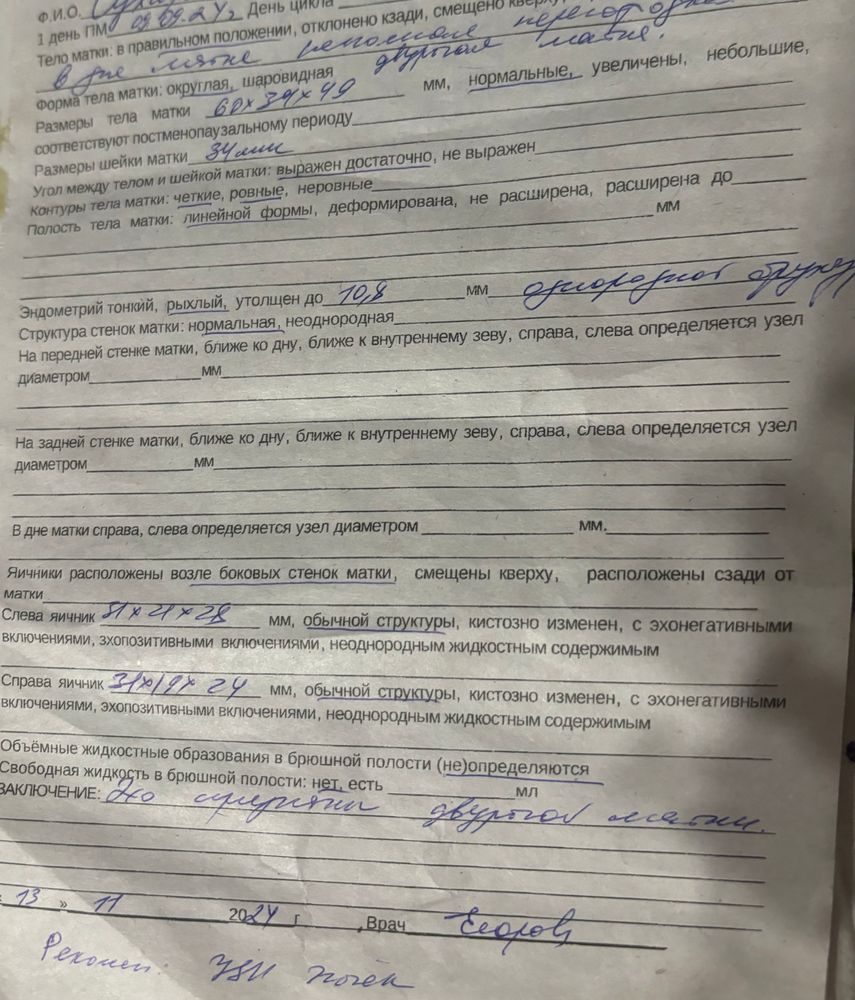 Ф.И.О.
1 день ПМ 09.09.24г День цикла
Тело матки: в правильном положении, отклонено кзади, смещено кверху,
в дне матки неполная перегородка
двурогая матка.
Форма тела матки: округлая, шаровидная
Размеры тела матки 60х39х49 мм, нормальные, увеличены, небольшие,
соответствуют постменопаузальному периоду
Размеры шейки матки 34мм
Угол между телом и шейкой матки: выражен достаточно, не выражен
Контуры тела матки: четкие, ровные, неровные
Полость тела матки: линейной формы, деформирована, не расширена, расширена до
мм
Эндометрий тонкий, рыхлый, утолщен до 10,8 мм однородной
Структура стенок матки: нормальная, неоднородная
На передней стенке матки, ближе ко дну, ближе к внутреннему зеву, справа, слева определяется узел
диаметром мм
На задней стенке матки, ближе ко дну, ближе к внутреннему зеву, справа, слева определяется узел
диаметром мм
В дне матки справа, слева определяется узел диаметром мм.
Яичники расположены возле боковых стенок матки, смещены кверху, расположены сзади от
матки
Слева яичник 31х21х28 мм, обычной структуры, кистозно изменен, с эхонегативными
включениями, зхопозитивными включениями, неоднородным жидкостным содержимым
Справа яичник 31х19х24 мм, обычной структуры, кистозно изменен, с эхонегативными
включениями, эхопозитивными включениями, неоднородным жидкостным содержимым
Объёмные жидкостные образования в брюшной полости (не)определяются
Свободная жидкость в брюшной полости: нет, есть мл
ЗАКЛЮЧЕНИЕ: Эхо признаки двурогой матки.
13 » 11 2024 г ,Врач
Рекомен: УЗИ почек